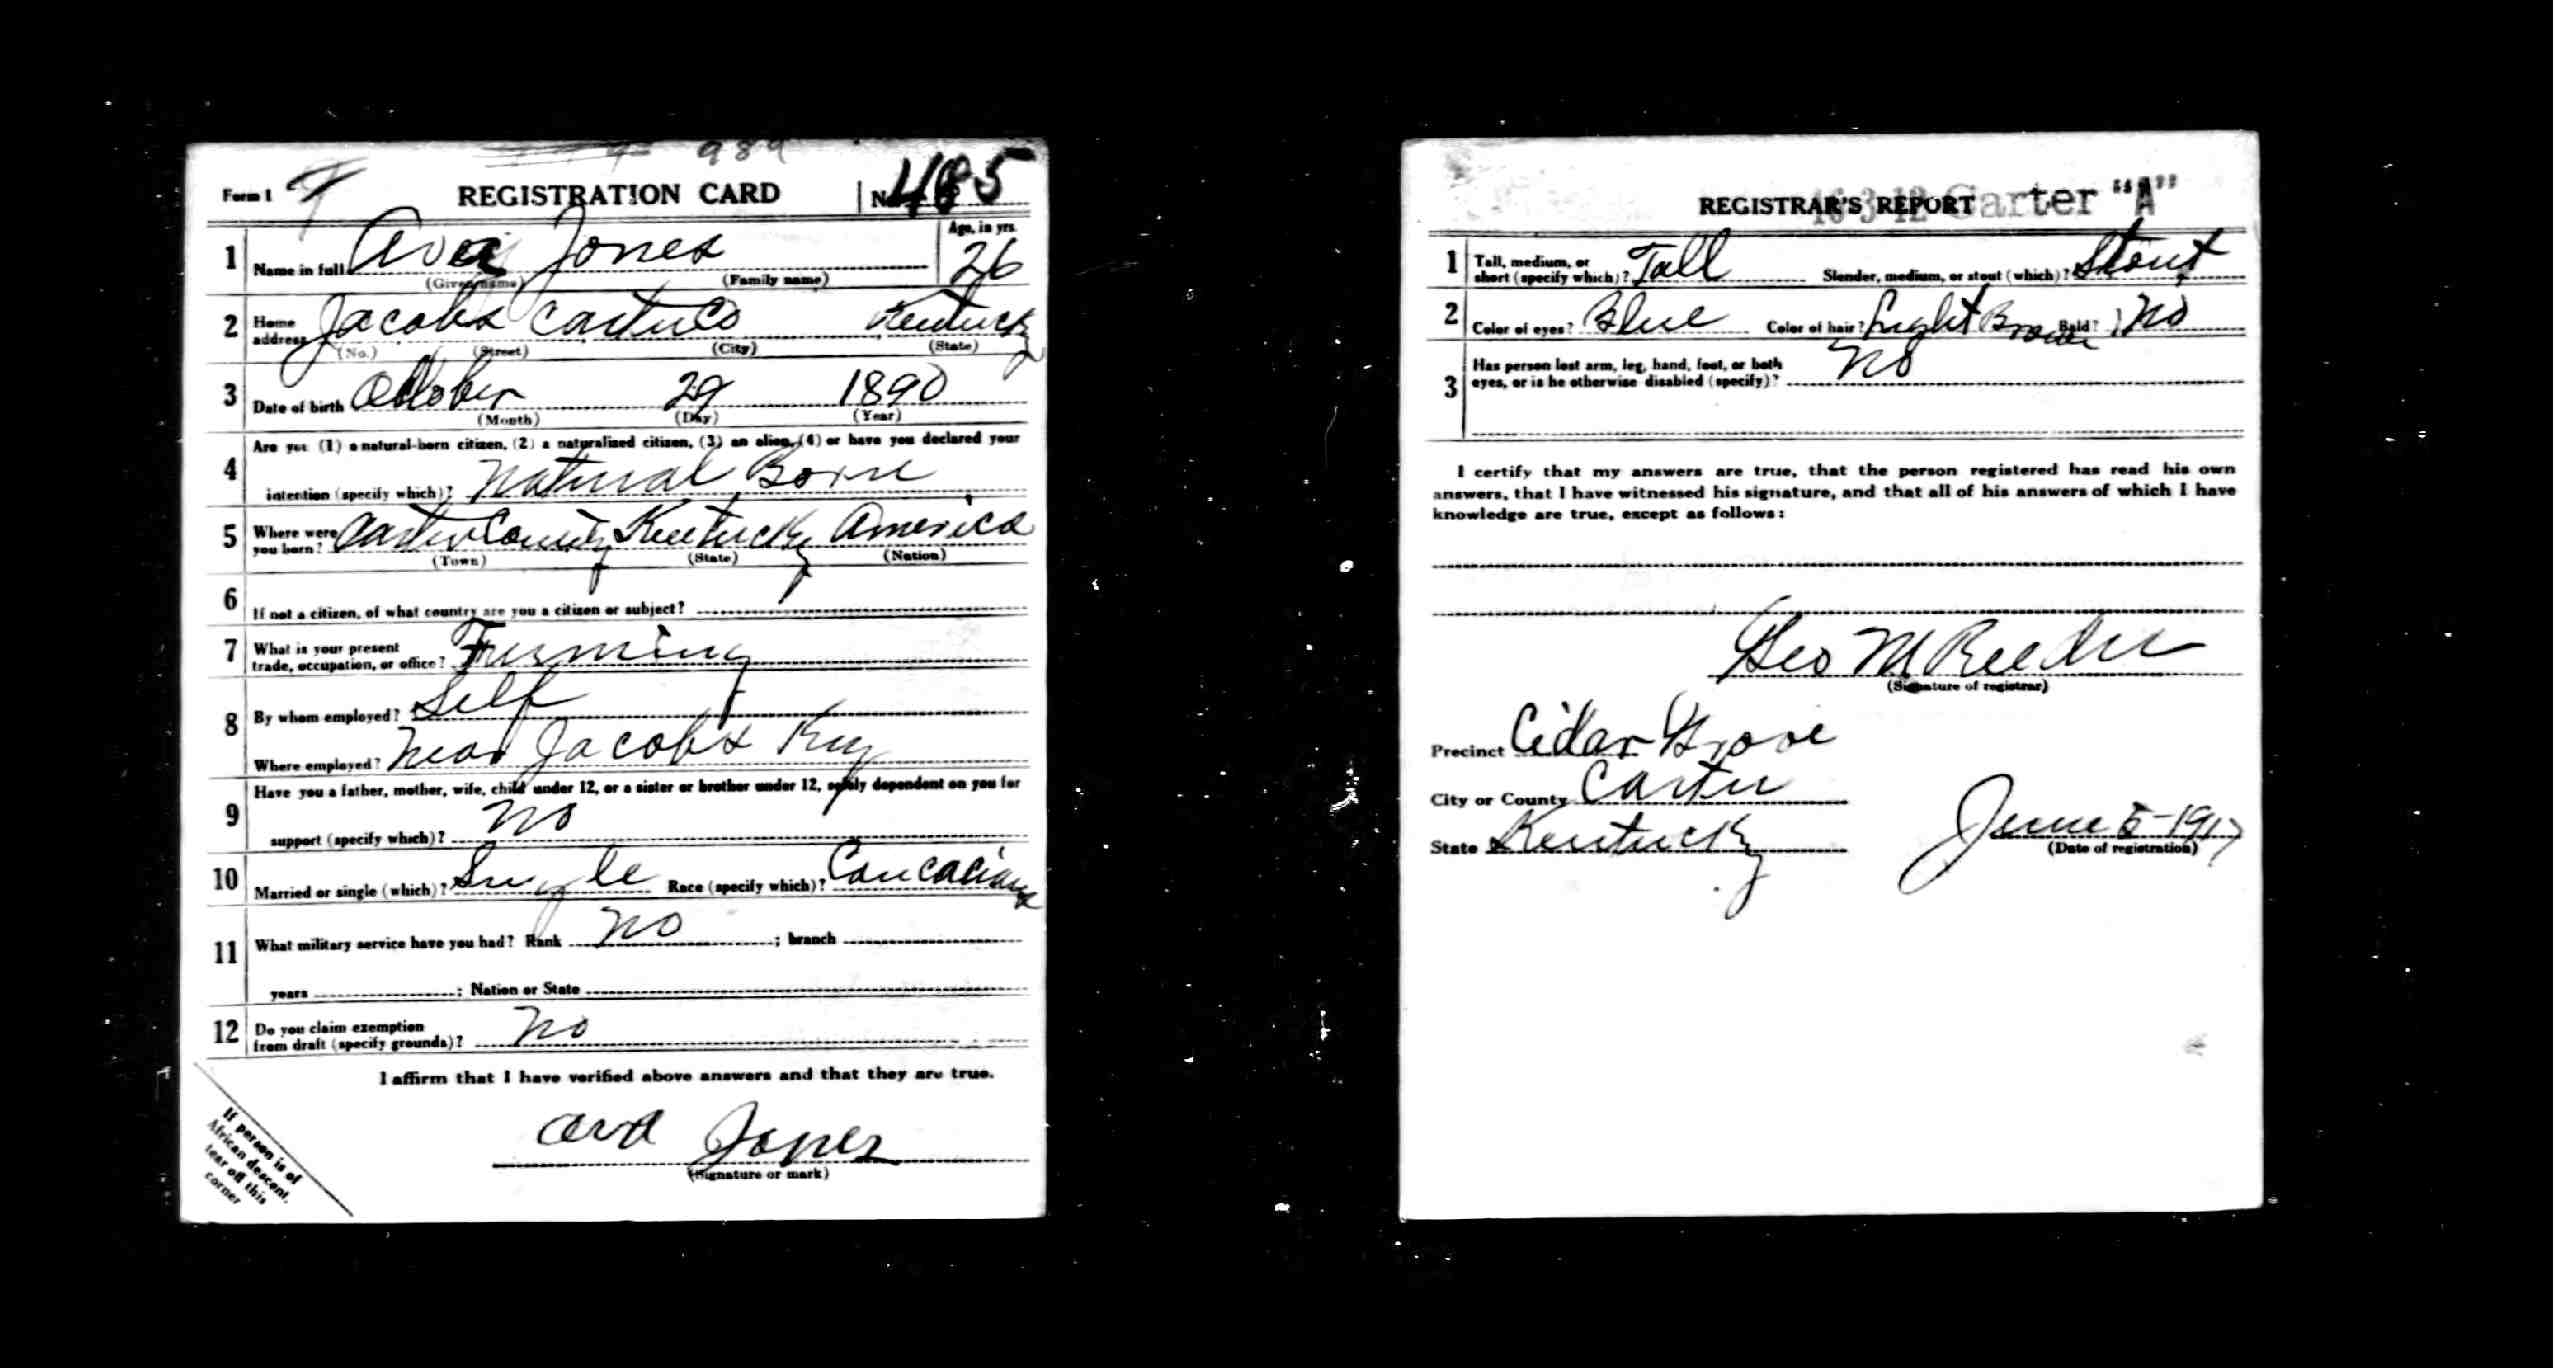 989
Form 1 REGISTRATION CARD No. 485
1 Name in full Ava Jones Age, in yrs. 26
(Given name) (Family name)
2 Home address Jacobs Carter Co Kentucky
(No.) (Street) (City) (State)
3 Date of birth October 29 1890
(Month) (Day) (Year)
4 Are you (1) a natural-born citizen, (2) a naturalized citizen, (3) an alien, (4) or have you declared your
intention (specify which)? Natural Born
5 Where were you born? Carter County Kentucky America
(Town) (State) (Nation)
6 If not a citizen, of what country are you a citizen or subject?
7 What is your present
trade, occupation, or office? Farming
8 By whom employed? Self
Where employed? Near Jacobs Ky
9 Have you a father, mother, wife, child under 12, or a sister or brother under 12, solely dependent on you for
support (specify which)? No
10 Married or single (which)? Single Race (specify which)? Caucacian
11 What military service have you had? Rank No ; branch
years ; Nation or State
12 Do you claim exemption
from draft (specify grounds)? No
I affirm that I have verified above answers and that they are true.
Ava Jones
(Signature or mark)
If person is of
African descent,
tear off this
corner
REGISTRAR'S REPORT 16-3-12 Carter "A"
1 Tall, medium, or
short (specify which)? Tall Slender, medium, or stout (which)? Stout
2 Color of eyes? Blue Color of hair? Light Brown Bald? No
3 Has person lost arm, leg, hand, foot, or both
eyes, or is he otherwise disabled (specify)? No
I certify that my answers are true, that the person registered has read his own
answers, that I have witnessed his signature, and that all of his answers of which I have
knowledge are true, except as follows:
Geo M Reeder
(Signature of registrar)
Precinct Cedar Grove
City or County Carter
State Kentucky June 5-1917
(Date of registration)